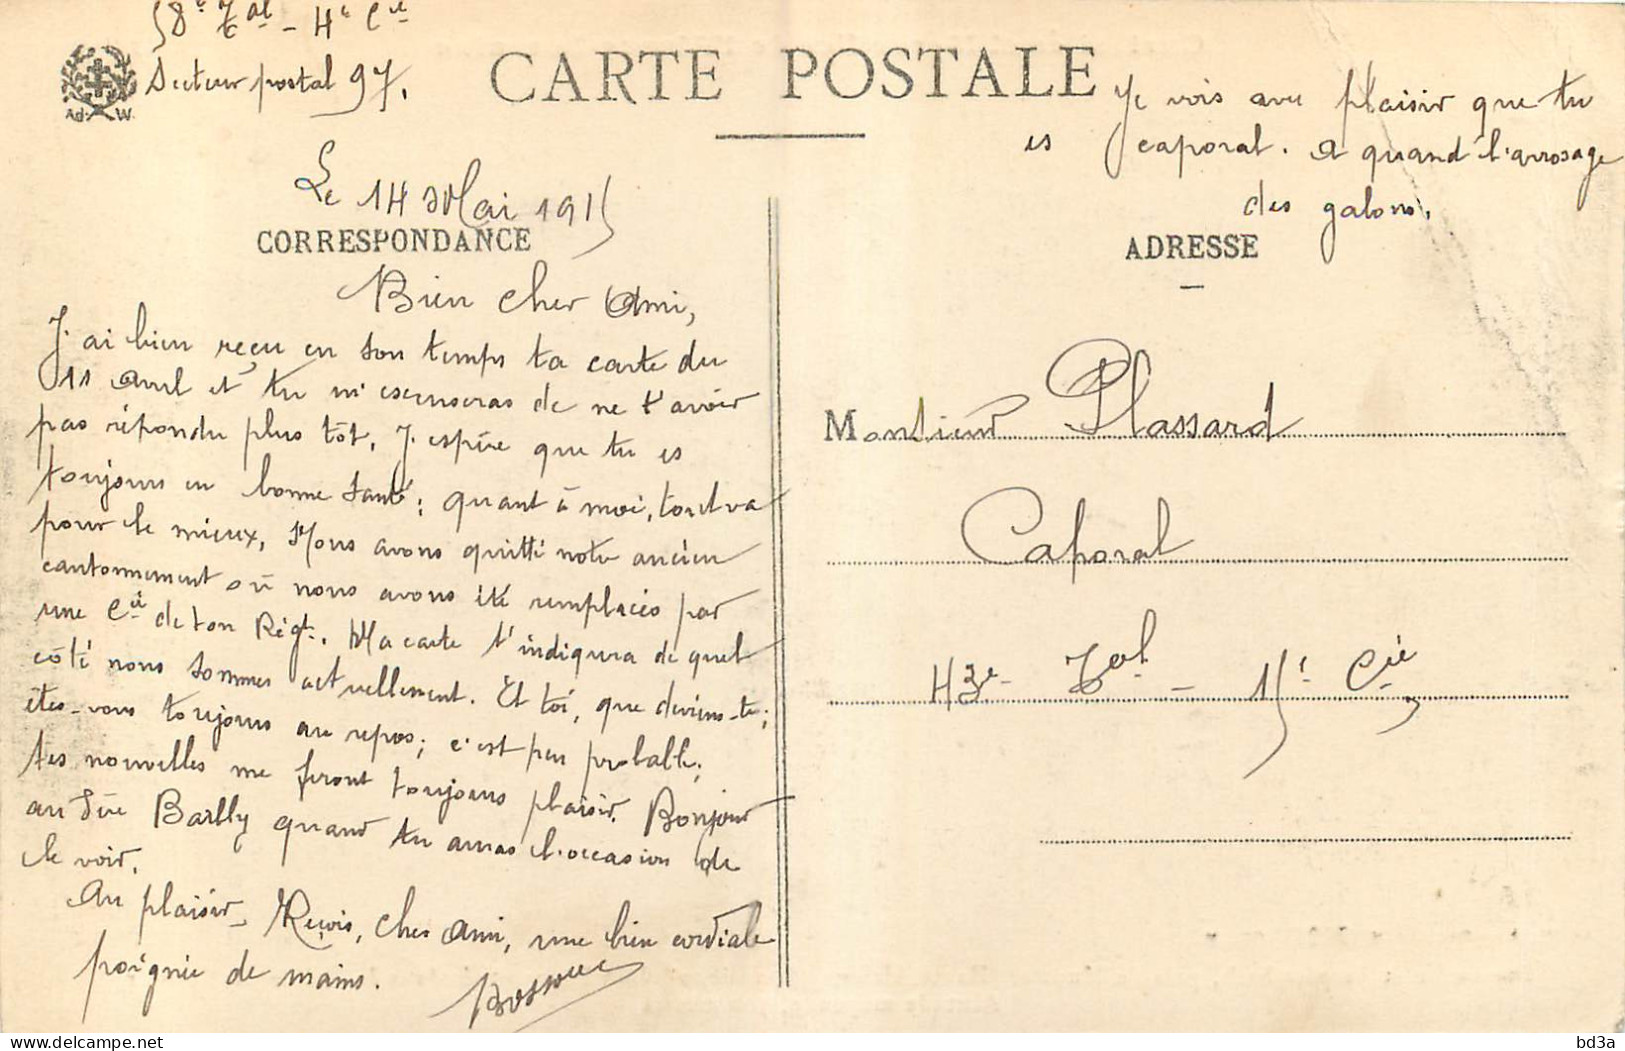 58e Tal - 4e Cie
Secteur postal 97.
Ad. W.
CARTE POSTALE
Je vois avec plaisir que tu
es caporal. A quand l'arrosage
des galons.
Le 14 Mai 1915
CORRESPONDANCE
ADRESSE
Bien cher Ami,
J'ai bien reçu en son temps ta carte du
11 Avril et tu m'escuseras de ne t'avoir
pas répondu plus tôt. J'espère que tu es
toujours en bonne santé; quant à moi, tout va
pour le mieux. Nous avons quitté notre ancien
cantonnement où nous avons été remplacés par
une Cie de ton Régt. Ma carte t'indiqura de quel
côté nous sommes actuellement. Et toi, que deviens-tu;
êtes-vous toujours au repos; c'est peu probable;
tes nouvelles me feront toujours plaisir. Bonjour
au Père Barlly quand tu auras l'occasion de
le voir.
Au plaisir - Reçois, cher Ami, une bien cordiale
poignée de mains.
Monsieur Plassard
Caporal
43e Tal - 15e Cie
bd3a